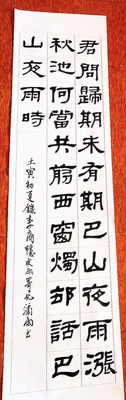 君問歸期未有期巴山夜雨漲
秋池何當共翦西窗燭卻話巴
山夜雨時
壬寅初夏錄李商隱夜雨寄北